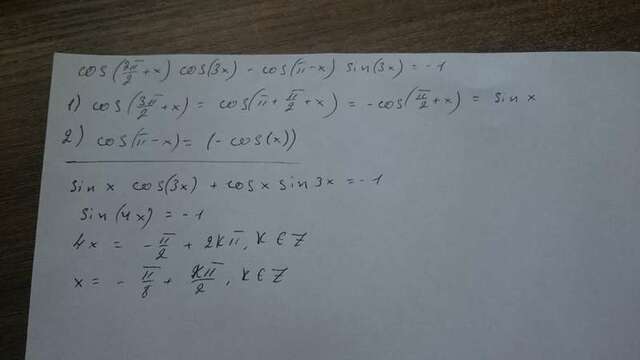 cos(3π/2 + x) cos(3x) - cos(π - x) sin(3x) = -1
1) cos(3π/2 + x) = cos(π + π/2 + x) = -cos(π/2 + x) = sin x
2) cos(π - x) = (-cos(x))
sin x cos(3x) + cos x sin 3x = -1
sin(4x) = -1
4x = - π/2 + 2Kπ, K ∈ Z
x = - π/8 + Kπ/2, K ∈ Z